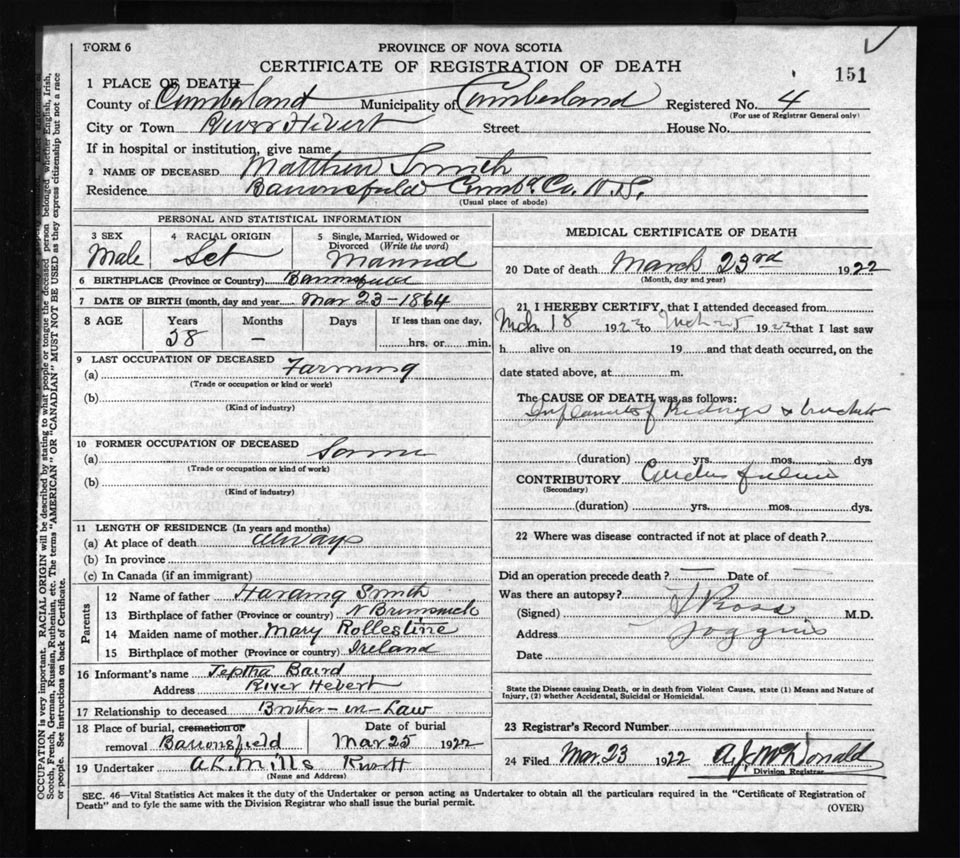 FORM 6
PROVINCE OF NOVA SCOTIA
CERTIFICATE OF REGISTRATION OF DEATH
151
1 PLACE OF DEATH—
County of Cumberland Municipality of Cumberland Registered No. 4
(For use of Registrar General only)
City or Town River Hebert Street House No.
If in hospital or institution, give name
2 NAME OF DECEASED Matthew Smith
Residence Barronsfield Cumb. Co. N.S.
(Usual place of abode)
PERSONAL AND STATISTICAL INFORMATION
3 SEX Male
4 RACIAL ORIGIN Sct
5 Single, Married, Widowed or Divorced (Write the word)
Married
6 BIRTHPLACE (Province or Country) Barronsfield
7 DATE OF BIRTH (month, day and year Mar 23-1864
8 AGE Years Months Days If less than one day,
58 — hrs. or min.
9 LAST OCCUPATION OF DECEASED
(a) Farming
(Trade or occupation or kind or work)
(b)
(Kind of industry)
10 FORMER OCCUPATION OF DECEASED
(a) Same
(Trade or occupation or kind of work)
(b)
(Kind of industry)
11 LENGTH OF RESIDENCE (In years and months)
(a) At place of death always
(b) In province
(c) In Canada (if an immigrant)
Parents
12 Name of father Smith
13 Birthplace of father (Province or country) N Brunswick
14 Maiden name of mother Mary Rollestine
15 Birthplace of mother (Province or country) Ireland
16 Informant's name Jeptha Baird
Address River Hebert
17 Relationship to deceased Brother-in-Law
18 Place of burial, cremation or removal Barronsfield
Date of burial Mar 25 1922
19 Undertaker A.L. Mills
(Name and Address)
MEDICAL CERTIFICATE OF DEATH
20 Date of death March 23rd 1922
(Month, day and year)
21 I HEREBY CERTIFY, that I attended deceased from
Mch 18 192 to 192 that I last saw
h alive on 19 and that death occurred, on the
date stated above, at m.
The CAUSE OF DEATH was as follows:
of Kidneys &
(duration) yrs. mos. dys
CONTRIBUTORY failure
(Secondary)
(duration) yrs. mos. dys.
22 Where was disease contracted if not at place of death?
Did an operation precede death? — Date of —
Was there an autopsy?
(Signed) J Ross M.D.
Address Joggins
Date
State the Disease causing Death, or in death from Violent Causes, state (1) Means and Nature of
Injury, (2) whether Accidental, Suicidal or Homicidal.
23 Registrar's Record Number
24 Filed Mar 23 1922 A.J. McDonald
Division Registrar
SEC. 46—Vital Statistics Act makes it the duty of the Undertaker or person acting as Undertaker to obtain all the particulars required in the "Certificate of Registration of
Death" and to fyle the same with the Division Registrar who shall issue the burial permit.
(OVER)
OCCUPATION is very important. RACIAL ORIGIN will be described by stating to what people or tongue the deceased person belonged whether English, Irish,
Scotch, French, German, Russian, Ruthenian, etc. The terms "AMERICAN" OR "CANADIAN" MUST NOT BE USED as they express citizenship but not a race
or people. See instructions on back of Certificate.